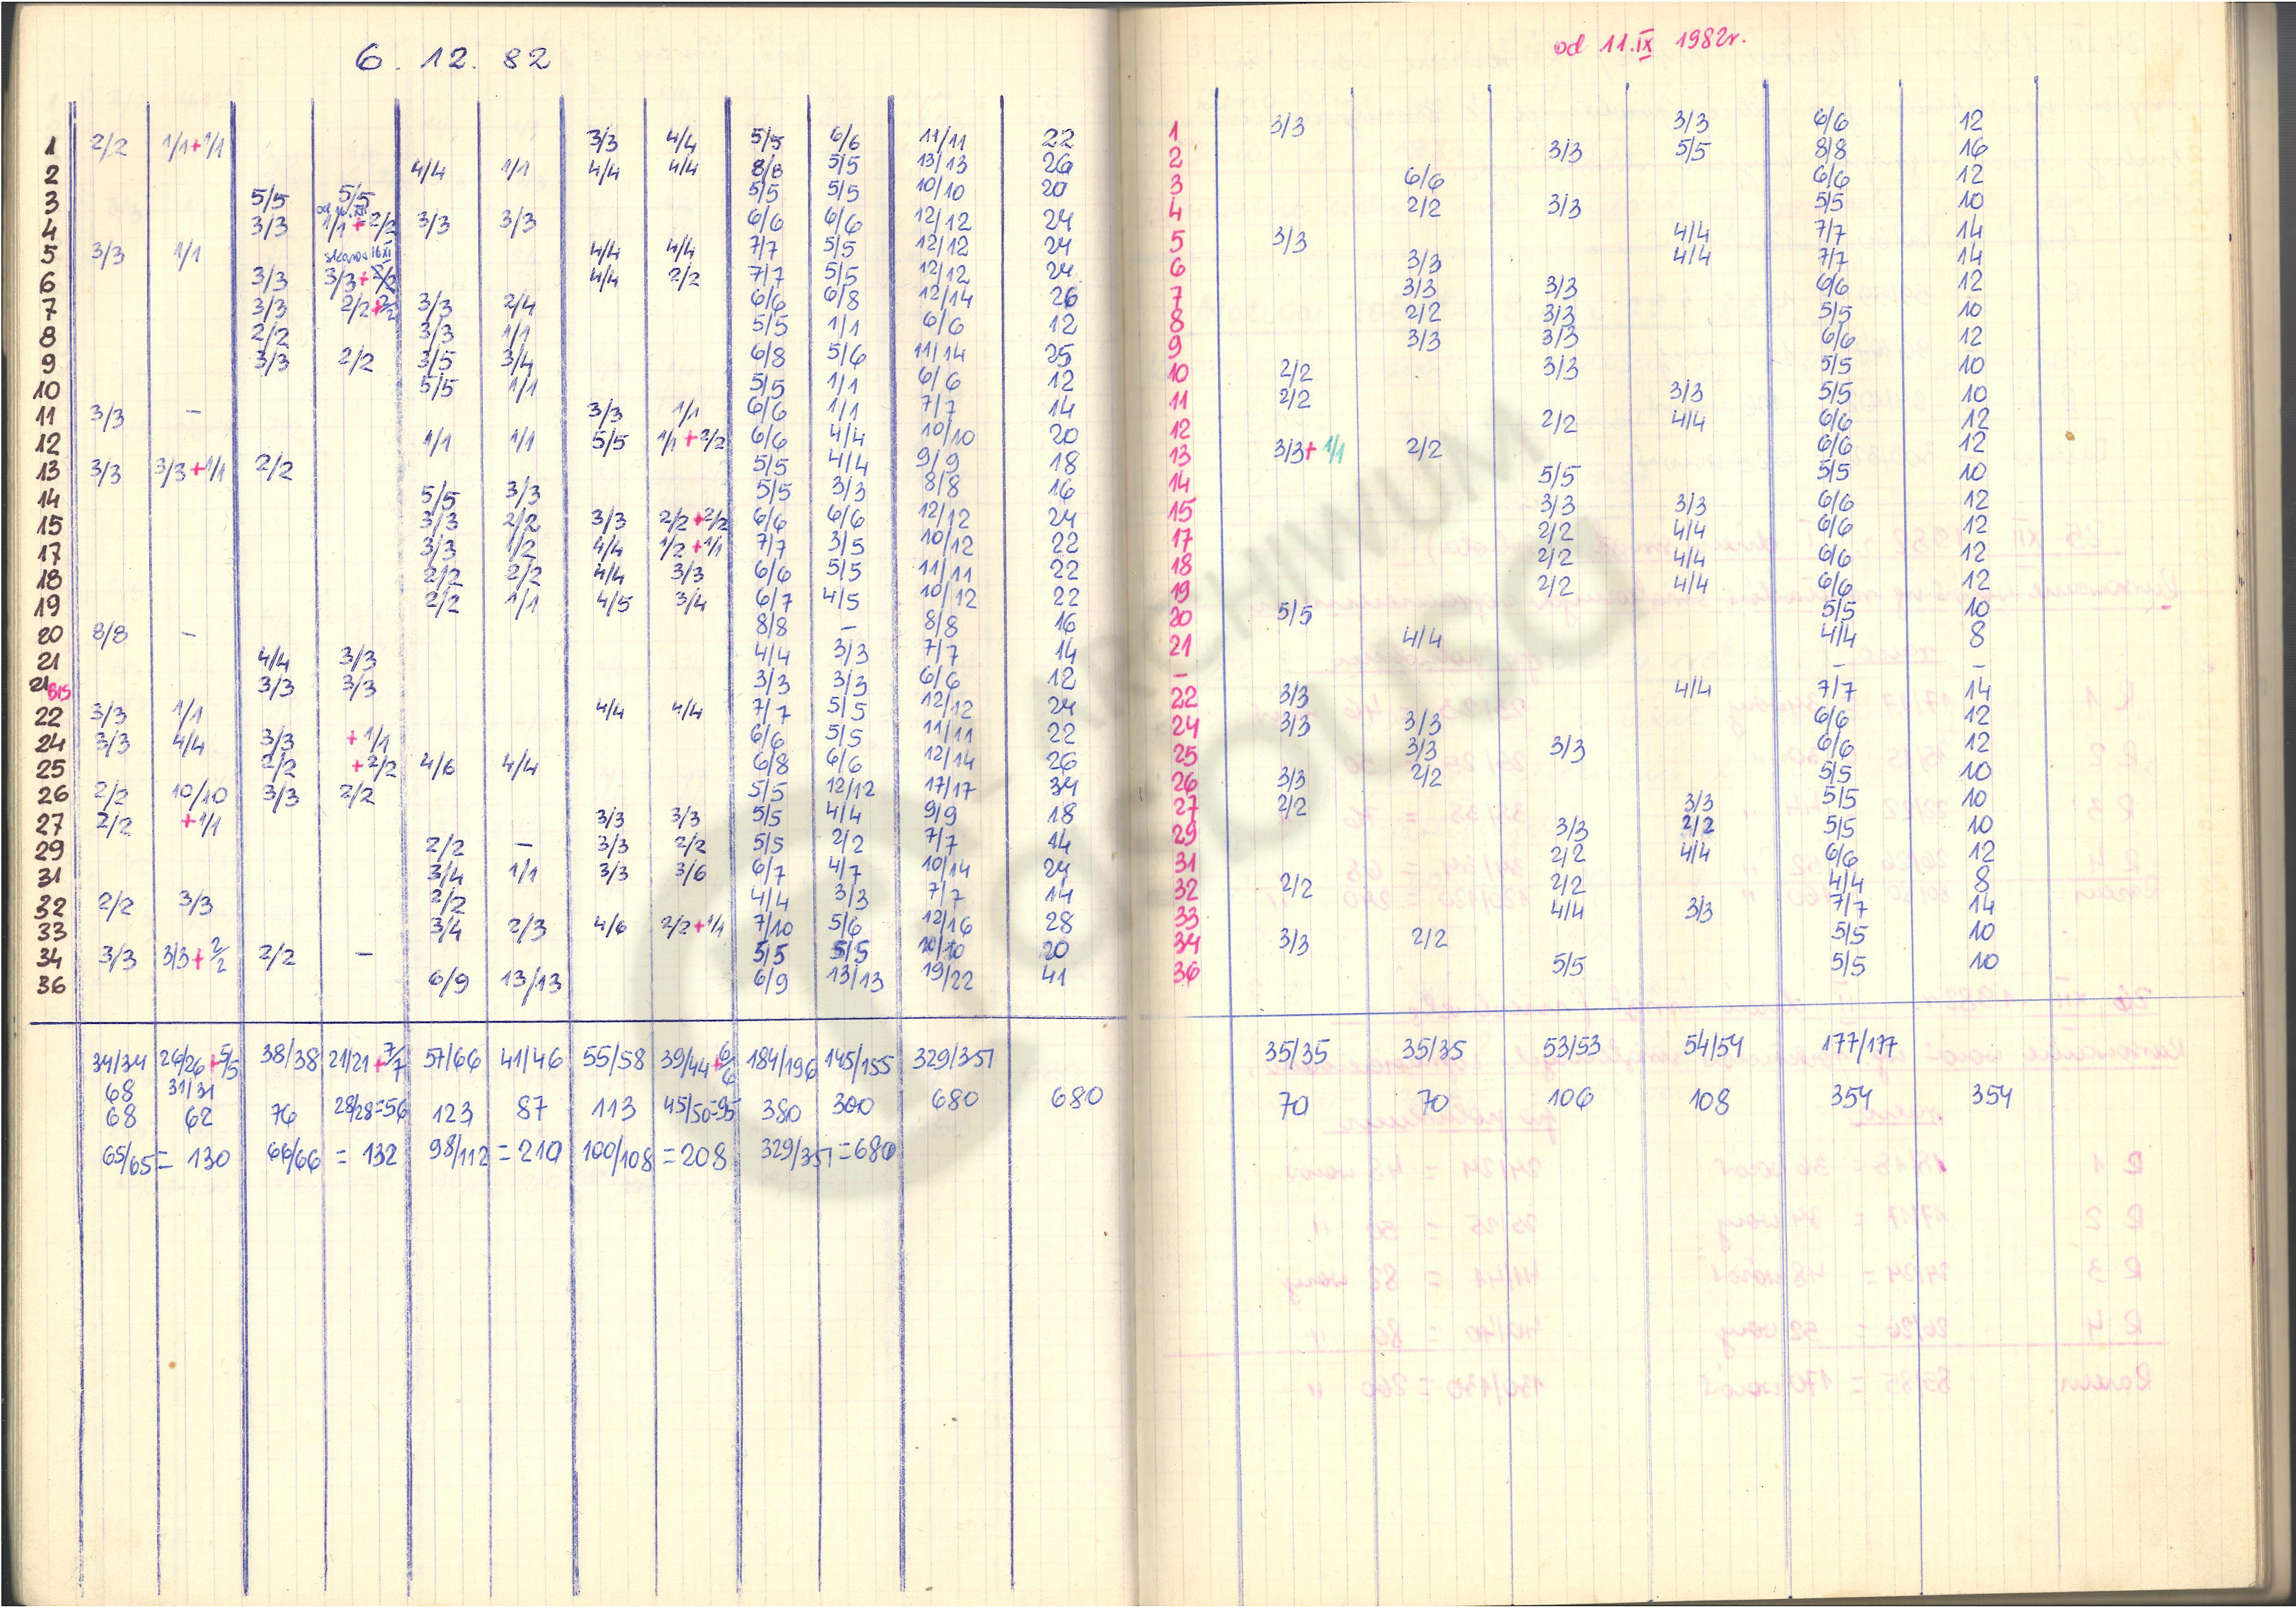 6. 12. 82
1 2/2 1/1+1/1 3/3 4/4 5/5 6/6 11/11 22
2 4/4 1/1 4/4 4/4 8/8 5/5 13/13 26
3 5/5 5/5 5/5 5/5 10/10 20
4 3/3 1/1+2/2 3/3 3/3 6/6 6/6 12/12 24
5 3/3 1/1 4/4 4/4 7/7 5/5 12/12 24
6 3/3 3/3+2/2 4/4 2/2 7/7 5/5 12/12 24
7 3/3 2/2+2/2 3/3 2/4 6/6 6/8 12/14 26
8 2/2 3/3 1/1 5/5 1/1 6/6 12
9 3/3 2/2 3/5 3/4 6/8 5/6 11/14 25
10 5/5 1/1 5/5 1/1 6/6 12
11 3/3 - 3/3 1/1 6/6 1/1 7/7 14
12 1/1 1/1 5/5 1/1+2/2 6/6 4/4 10/10 20
13 3/3 3/3+1/1 2/2 5/5 4/4 9/9 18
14 5/5 3/3 5/5 3/3 8/8 16
15 3/3 2/2 3/3 2/2+2/2 6/6 6/6 12/12 24
17 3/3 1/2 4/4 1/2+1/1 7/7 3/5 10/12 22
18 2/2 2/2 4/4 3/3 6/6 5/5 11/11 22
19 2/2 1/1 4/5 3/4 6/7 4/5 10/12 22
20 8/8 - 8/8 - 8/8 16
21 4/4 3/3 4/4 3/3 7/7 14
21 BIS 3/3 3/3 3/3 3/3 6/6 12
22 3/3 1/1 4/4 4/4 7/7 5/5 12/12 24
24 3/3 4/4 3/3 +1/1 6/6 5/5 11/11 22
25 2/2 +2/2 4/6 4/4 6/8 6/6 12/14 26
26 2/2 10/10 3/3 2/2 5/5 12/12 17/17 34
27 2/2 +1/1 3/3 3/3 5/5 4/4 9/9 18
29 2/2 - 3/3 2/2 5/5 2/2 7/7 14
31 3/4 1/1 3/3 3/6 6/7 4/7 10/14 24
32 2/2 3/3 2/2 4/4 3/3 7/7 14
33 3/4 2/3 4/6 2/2+1/1 7/10 5/6 12/16 28
34 3/3 3/3+2/2 2/2 - 5/5 5/5 10/10 20
36 6/9 13/13 6/9 13/13 19/22 41
34/34 26/26+5/5 38/38 21/21+7/7 57/66 41/46 55/58 39/44+6/6 184/196 145/155 329/351
68 31/31
68 62 76 28/28=56 123 87 113 45/50=95 380 300 680 680
65/65 = 130 66/66 = 132 98/112 = 210 100/108 = 208 329/351 = 680
od 11.IX 1982r.
1 3/3 3/3 6/6 12
2 3/3 5/5 8/8 16
3 6/6 6/6 12
4 2/2 3/3 5/5 10
5 3/3 4/4 7/7 14
6 3/3 4/4 7/7 14
7 3/3 3/3 6/6 12
8 2/2 3/3 5/5 10
9 3/3 3/3 6/6 12
10 2/2 3/3 5/5 10
11 2/2 3/3 5/5 10
12 2/2 4/4 6/6 12
13 3/3+1/1 2/2 6/6 12
14 5/5 5/5 10
15 3/3 3/3 6/6 12
17 2/2 4/4 6/6 12
18 2/2 4/4 6/6 12
19 2/2 4/4 6/6 12
20 5/5 5/5 10
21 4/4 4/4 8
- - -
22 3/3 4/4 7/7 14
24 3/3 3/3 6/6 12
25 3/3 3/3 6/6 12
26 3/3 2/2 5/5 10
27 2/2 3/3 5/5 10
29 3/3 2/2 5/5 10
31 2/2 4/4 6/6 12
32 2/2 2/2 4/4 8
33 4/4 3/3 7/7 14
34 3/3 2/2 5/5 10
36 5/5 5/5 10
35/35 35/35 53/53 54/54 177/177
70 70 106 108 354 354